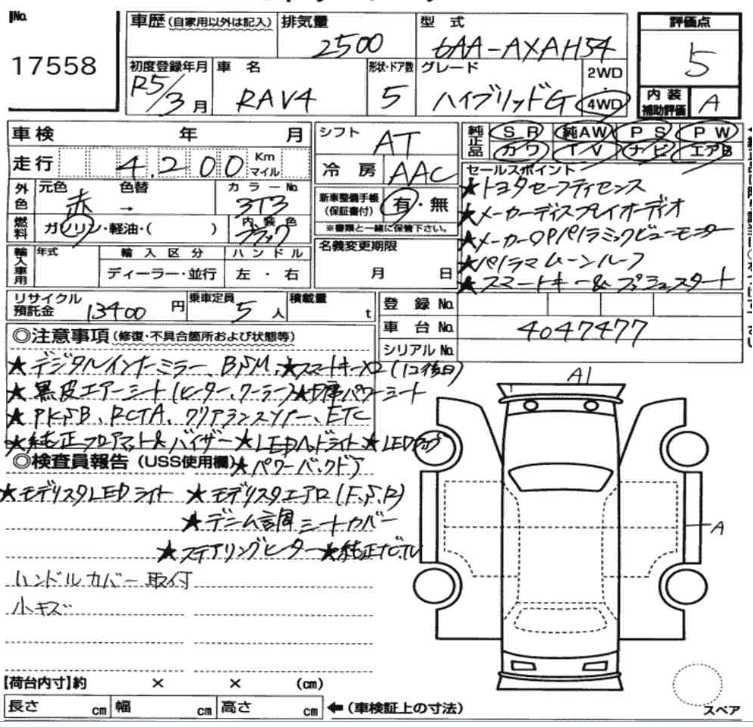 No. 17558
車歴(自家用以外は記入) 排気量 2500 型式 6AA-AXAH54 評価点 5
初度登録年月 R5/3月 車名 RAV4 形状・ドア数 5 グレード ハイブリッドG 2WD 4WD 内装補助評価 A
車検 年 月 シフト AT 純正品 SR 純AW PS PW
カワ TV ナビ エアB
走行 4,200 Km マイル 冷房 AAC セールスポイント
外色 元色 赤 色替 → カラーNo. 3T3 新車整備手帳(保証書付) 有・無 ※書類と一緒に保管下さい。
★トヨタセーフティセンス
★メーカーディスプレイオーディオ
燃料 ガソリン・軽油・( ) 内装色 ブラック 名義変更期限 月 日
★メーカーOPパノラミックビューモニター
輸入車用 年式 輸入区分 ディーラー・並行 ハンドル 左・右
★パノラマムーンルーフ
★スマートキー&プッシュスタート
リサイクル預託金 13400円 乗車定員 5人 積載量 t 登録No.
車台No. 4047477
シリアルNo.
◎注意事項(修復・不具合箇所および状態等)
★デジタルインナーミラー、BSM、★スマートキー×2(1コ後日)
★黒皮エアーシート(ヒーター、クーラー)★D席パワーシート
★PKSB、RCTA、クリアランスソナー、ETC
★純正フロアマット&バイザー★LEDヘッドライト★LEDフォグ
◎検査員報告(USS使用欄)★パワーバックドア
★モデリスタLEDライト ★モデリスタエアロ(F,S,R)
★デニム調シートカバー
★ステアリングヒーター★純正ナビTV
ハンドルカバー取付
小キズ
A1
A
【荷台内寸】約 × × (cm)
長さ cm 幅 cm 高さ cm ←(車検証上の寸法)
スペア